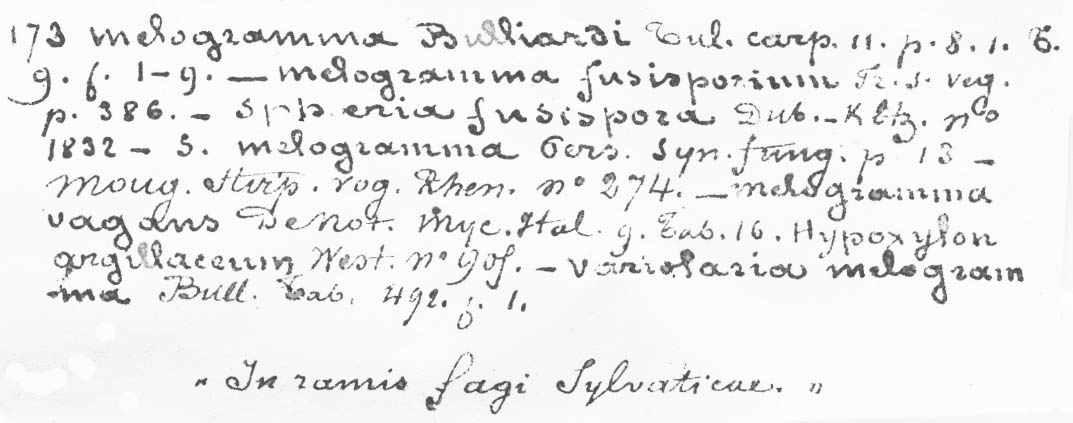 173 melogramma Bulliardi Tul. carp. 11. p. 8. 1. T.
9. f. 1-9. — melogramma fusisporium Fr. s. veg.
p. 386. — Sphæria fusispora Dub. — Ktz. nº
1832 — S. melogramma Pers. Syn. fung. p 13 —
Moug. Stirp. vog. Rhen. nº 274. — melogramma
vagans De Not. Myc. Ital. 9. Tab. 16. Hypoxylon
argillaceum West. nº 905. — variolaria melogram
ma Bull. Tab. 492. f. 1.
„ In ramis fagi Sylvaticae. „